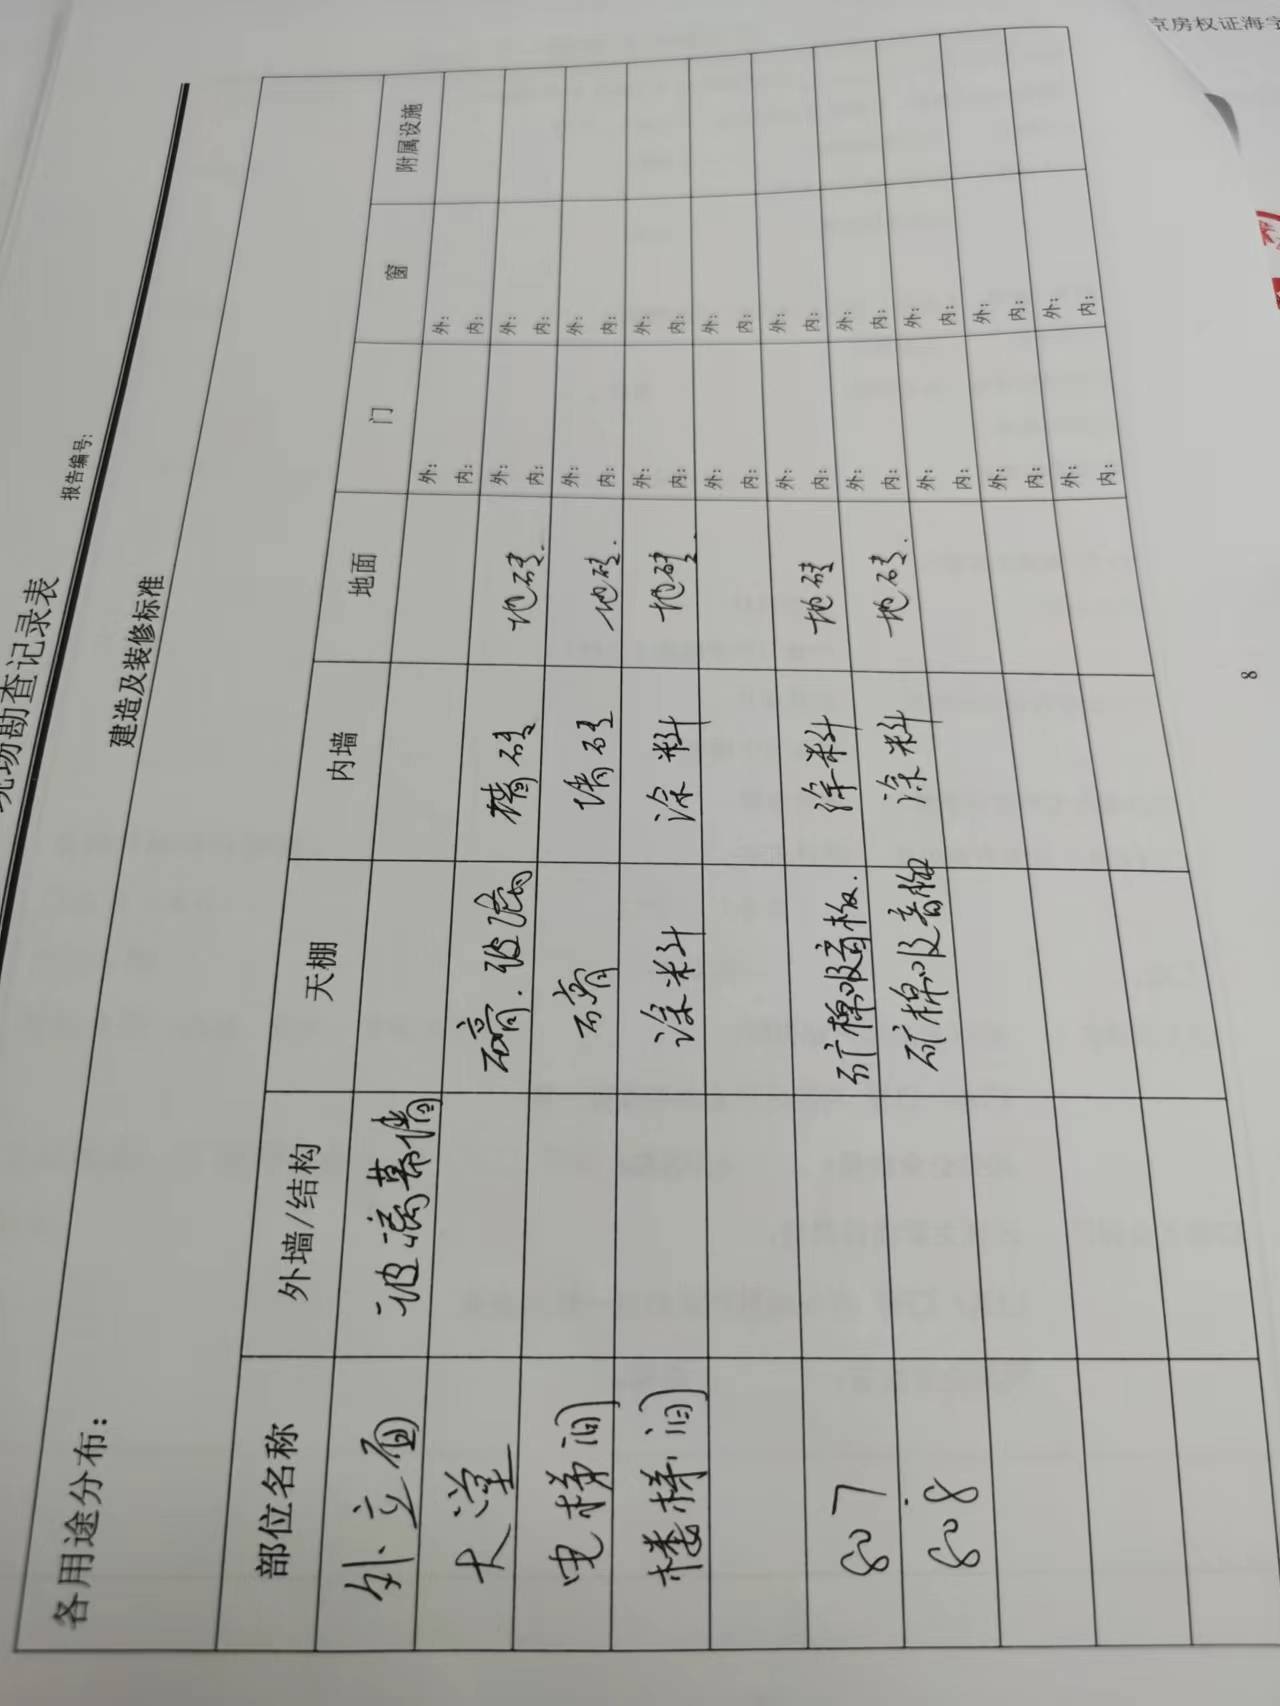 京房权证海字
现场勘查记录表
报告编号:
建造及装修标准
各用途分布:
部位名称 外墙/结构 天棚 内墙 地面 门 窗 附属设施
外立面 玻璃幕墙 外: 内: 外: 内:
大堂 石膏.玻璃 墙砖 地砖. 外: 内: 外: 内:
电梯间 石膏 墙砖 地砖. 外: 内: 外: 内:
楼梯间 涂料 涂料 地砖. 外: 内: 外: 内:
外: 内: 外: 内:
807 矿棉吸音板. 涂料 地砖 外: 内: 外: 内:
808 矿棉吸音板 涂料 地砖. 外: 内: 外: 内:
外: 内: 外: 内:
外: 内: 外: 内:
外: 内: 外: 内:
8